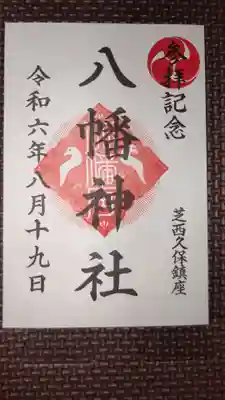 参拝記念
芝西久保鎮座
八幡神社
令和六年八月十九日